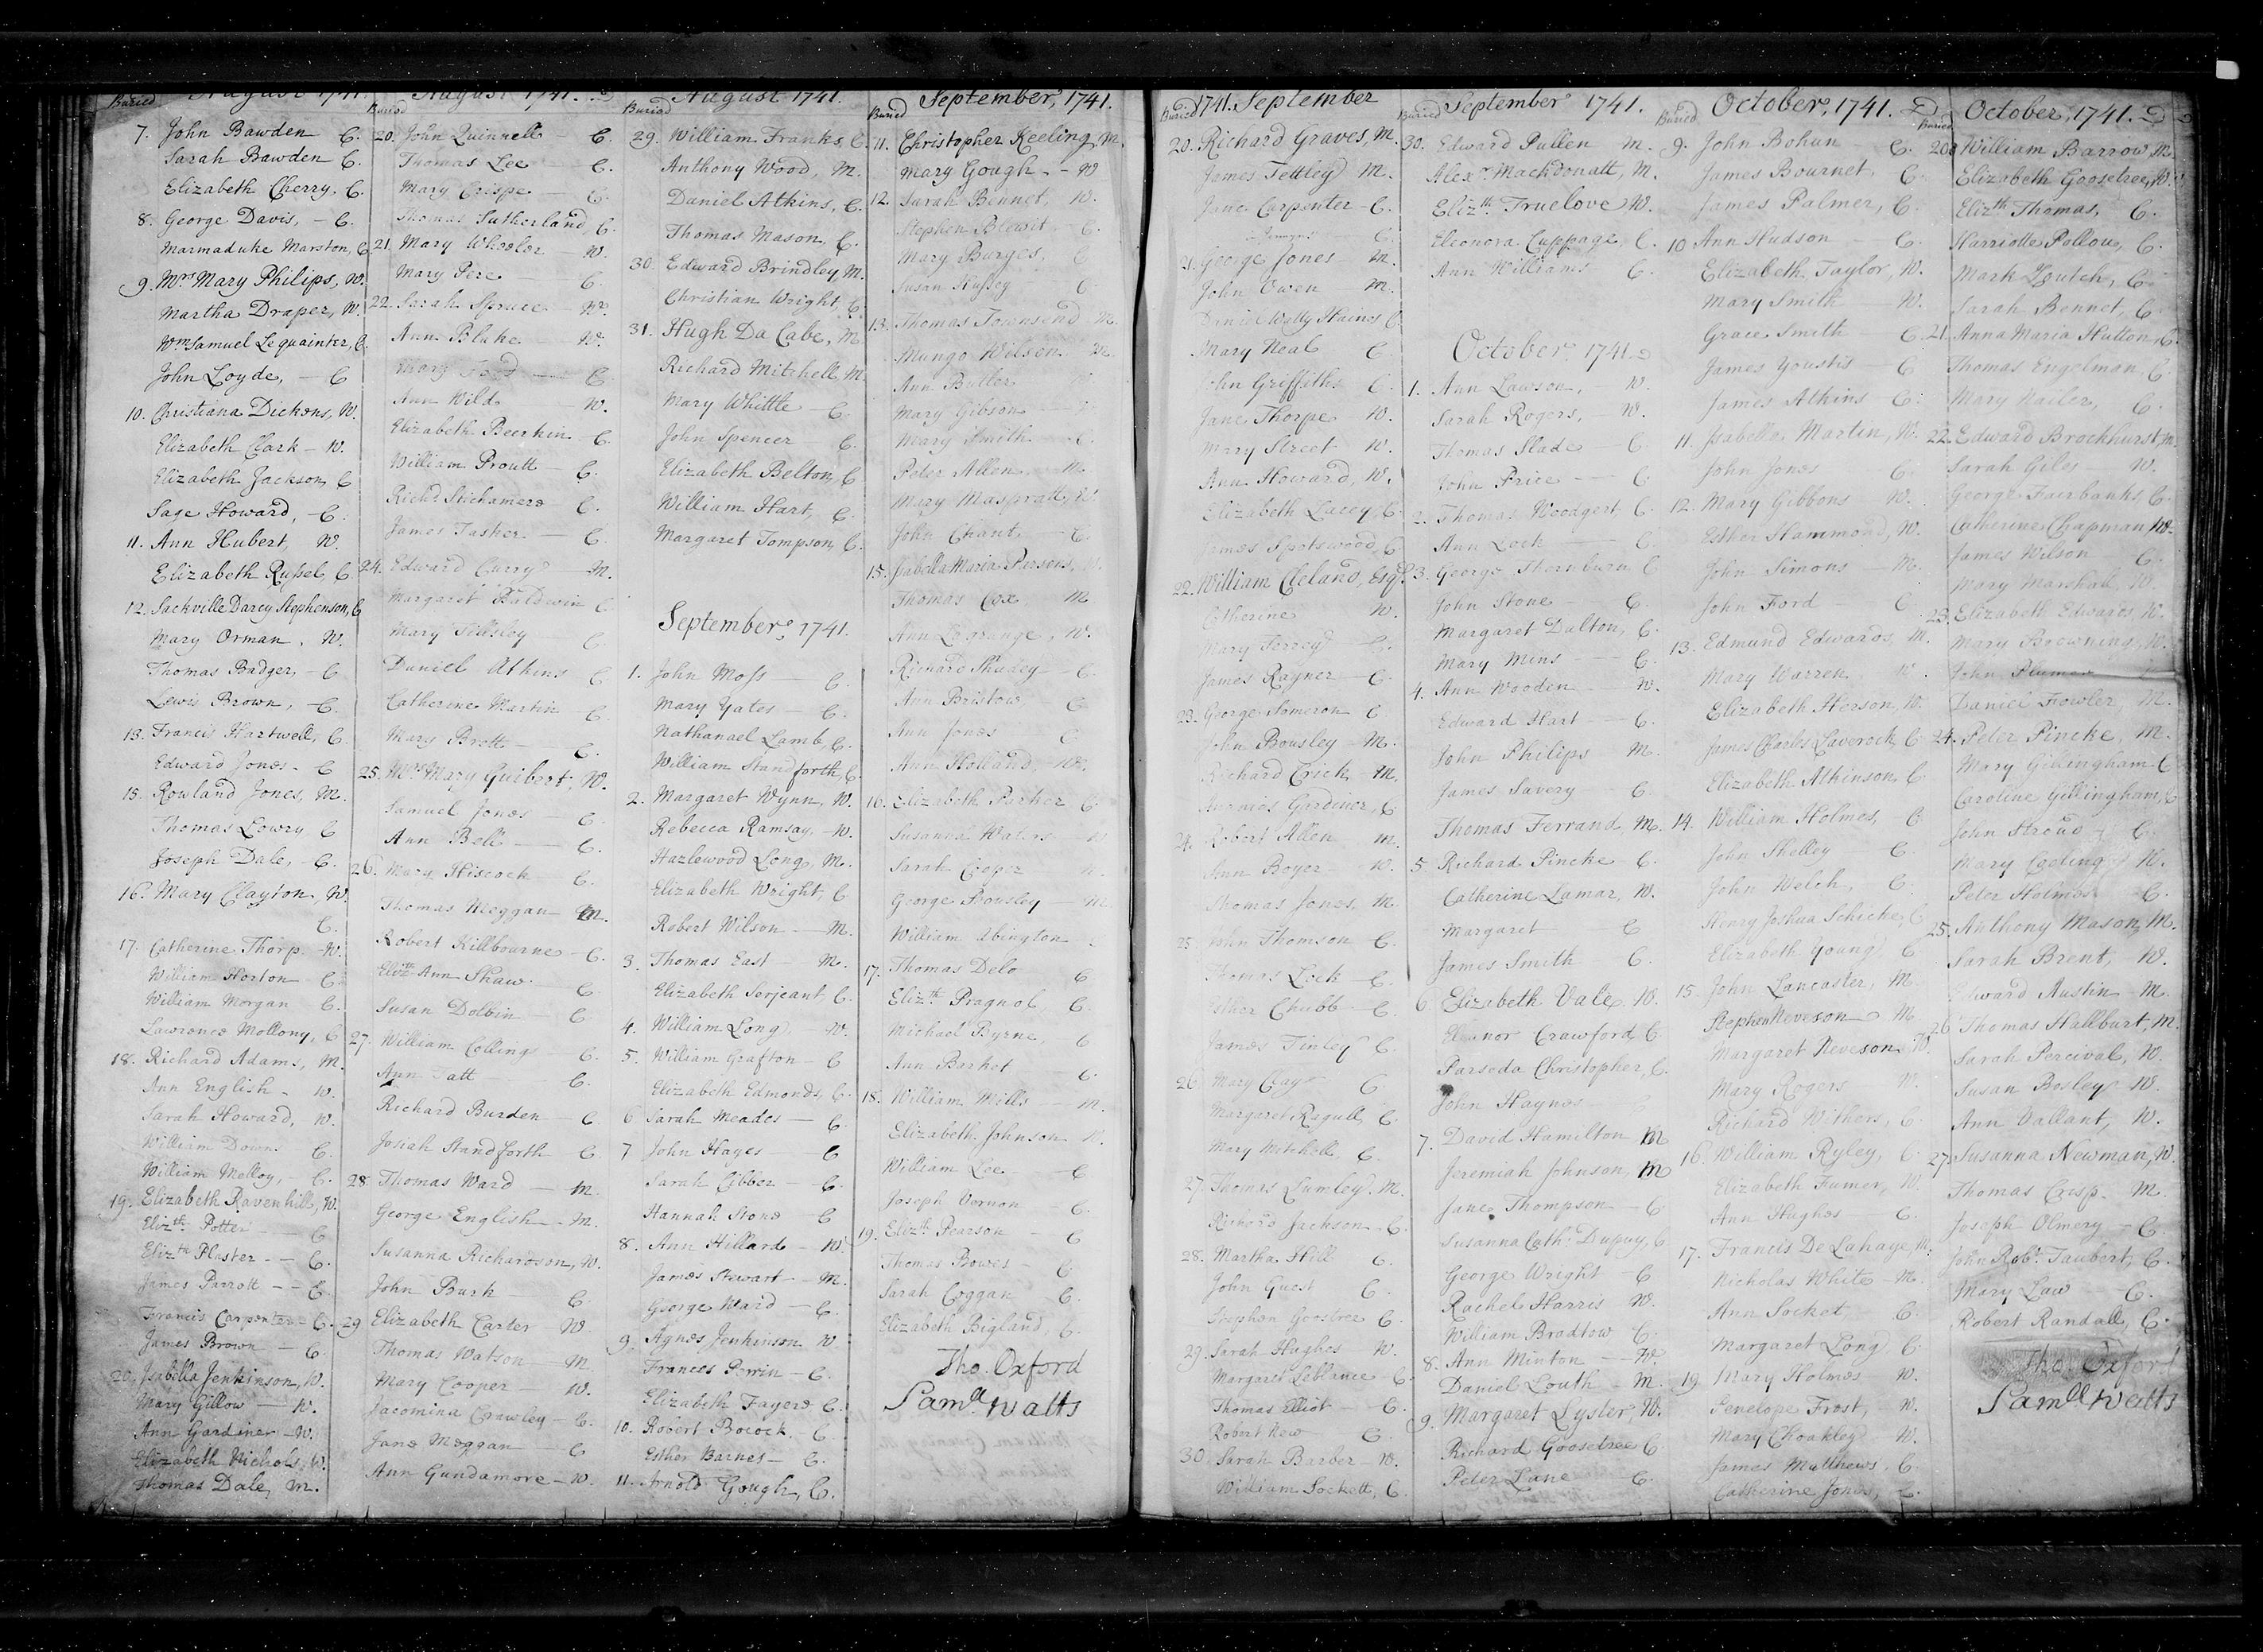 Buried August 1741.
7. John Bawden C.
Sarah Bawden C.
Elizabeth Cherry. C.
8. George Davis, - C.
Marmaduke Marston, C.
9. Mrs Mary Philips, W.
Martha Draper, W.
Wm Samuel Lequainter, C.
John Loyde, - C
10. Christiana Dickens, W.
Elizabeth Clark - W.
Elizabeth Jackson, C
Sage Howard, - C.
11. Ann Hubert, W.
Elizabeth Russel, C
12. Sackville Darcy Stephenson, C
Mary Orman, W.
Thomas Badger, - C
Lewis Brown, - C.
13. Francis Hartwell, C.
Edward Jones - C
15. Rowland Jones, M.
Thomas Lowry C
Joseph Dale, - C.
16. Mary Clayton, W.
C.
17. Catherine Thorp - W.
William Horton C.
William Morgan C.
Lawrence Mollony, C
18. Richard Adams, M.
Ann English - W.
Sarah Howard, W.
William Down. C.
William Melloy, - C.
19. Elizabeth Ravenhill, W.
Elizth Potter - C
Elizth Plaster - - C.
James Parrott - - C.
Francis Carpenter - C.
James Brown - C.
20. Isabella Jenkinson, W.
Mary Gillow - W.
Ann Gardiner - W.
Elizabeth Nichols, W.
Thomas Dale, M.
Buried August 1741.
20. John Quinnell - C.
Thomas Lee C.
Mary Crispe C.
Thomas Sutherland, C.
21. Mary Wheeler W.
Mary Pere C.
22. Sarah Spruce W.
Ann Blake W.
Mary C.
Ann Wild W.
Elizabeth Beerkin - C.
William Proutt - C.
Richd C.
James Tasher - C.
24. Edward Curry - M.
Margaret Baldwin C
Mary C.
Daniel Atkins C
Catherine Martin - C.
Mary Brett - C.
25. Mrs Mary Guibert, W.
Samuel Jones - C.
Ann Bell - C.
26. Mary Hiscock - C.
Thomas Meggan - M.
Robert Killbourne - C.
Elizth Ann Shaw. C
Susan Dolbin - C
27. William Colling C.
Ann Tatt C.
Richard Burden - C
Josiah Standforth C.
28. Thomas Ward - M.
George English - M.
Susanna Richardson, W.
John Burk - C.
29 Elizabeth Carter - W.
Thomas Watson - M.
Mary Cooper - W.
Jacomina Crawley - C.
Jane Meggan C
Ann Gundamore - W.
Buried August 1741.
29. William Franks, C.
Anthony Wood, M.
Daniel Atkins, C.
Thomas Mason, C.
30. Edward Brindley, M.
Christian Wright, C.
31. Hugh Da Cabe, M.
Richard Mitchell M.
Mary Whittle - C.
John Spencer - C.
Elizabeth Belton, C
William Hart, C.
Margaret Tompson, C.
September, 1741.
1. John Moss - C.
Mary Yates - C.
Nathanael Lamb, C.
William Standforth, C.
2. Margaret Wynn, W.
Rebecca Ramsay, - W.
Hazlewood Long, M.
Elizabeth Wright, C
Robert Wilson - M.
3. Thomas East - M.
Elizabeth Serjeant, C.
4. William Long, - W.
5. William Grafton - C
Elizabeth Edmonds, C.
6 Sarah Meades - C.
7 John Hayes - C
Sarah Cibber - C.
Hannah Stone C
8. Ann Hillard - W.
James Stewart - M.
George Ward - C.
9. Agnes Jenkinson W.
Frances Perrin - C.
Elizabeth Fayers C.
10. Robert Bocock. - C
Esther Barnes - C.
11. Arnold Gough, C.
Buried September, 1741.
11. Christopher Keeling, M.
Mary Gough - - W
12. Sarah Bennet, W.
Stephen Blewit - C.
Mary Burges, C
Susan Hussey C.
13. Thomas Townsend M.
Mungo Wilson M.
Ann Butler
Mary Gibson
Mary Smith C.
Peter Allen M.
Mary Maspratt,
John Chant, - C.
15. Isabella Maria Parsons,
Thomas Cox M
Ann Lagrange, W.
Richard - C.
Ann Bristow C
Ann Jones C
Ann Holland, W.
16. Elizabeth Parker C.
Susanna Waters
Sarah Cooper
George Bousley - M.
William Abington
17. Thomas Delo C
Elizth Pragnol C.
Michael Byrne, C
Ann Barket C.
18. William Mills - M.
Elizabeth Johnson W.
William Lee - C
Joseph Vernon - C.
19. Elizth Pearson - C
Thomas Bowes - C.
Sarah Coggan C.
Elizabeth Bigland, C.
Tho. Oxford
Samll Watts
Buried 1741. September
20. Richard Graves, M.
James Tettley M.
Jane Carpenter - C.
C.
21. George Jones M.
John Owen - M.
Daniel Watty Haines C.
Mary Neal C.
John Griffiths C.
Jane Thorpe W.
Mary Street W.
Ann Howard, W.
Elizabeth Lacey, C.
James Spotswood, C.
22. William Cleland, Esqr
Catherine W.
Mary Ferrey C.
James Rayner - C.
23. George Someron C
John Bousley - M.
Richard Crick - M.
Gardiner, C
24. Robert Allen M.
Ann Boyer W.
Thomas Jones, M
25. John Thomson C.
Thomas Lock C.
Esther Chubb - C.
James Finley C.
26. Mary Cray C.
Margaret C.
Mary Mitchell, C.
27. Thomas Lumley, M.
Richard Jackson - C.
28. Martha Hill C.
John Guest C.
Stephen Goostree C.
29. Sarah Hughes W.
Margaret Leblance C.
Thomas Elliot - C.
Robert New C.
30. Sarah Barber - W.
William Sockett, C.
Buried September 1741.
30. Edward Pullen M.
Alexr Mackdonatt, M.
Elizth Truelove W.
Eleonora Cuppage, C.
Ann Williams C.
October 1741.
1. Ann Lawson, W.
Sarah Rogers, - W.
Thomas Slade - C.
John Price - - C.
2. Thomas Woodgert C.
Ann Lock C.
3. George Thornburn C
John Stone - C.
Margaret Dalton, C.
Mary Mins - C.
4. Ann Wooden - W.
Edward Hart - C.
John Philips M.
James Savery - C.
Thomas Ferrand, M.
5 Richard Pincke C.
Catherine Lamar, W.
Margaret C
James Smith C.
6 Elizabeth Vale, W.
Eleanor Crawford, C
Parseda Christopher, C.
John Haynes
7. David Hamilton M
Jeremiah Johnson, M
Jane Thompson - C.
Susanna Cath. Dupuy, C
George Wright - C
Rachel Harris W.
William Bradtow C.
8. Ann Minton - W.
Daniel Louth - M.
9. Margaret Lyster, W.
Richard Goosetree C
Peter Lane C.
Buried October, 1741.
9. John Bohun - C.
James Bournet, C.
James Palmer, C.
10 Ann Hudson - C.
Elizabeth Taylor, W.
Mary Smith - W.
Grace Smith - C.
James Youstis - C
James Atkins - C.
11. Isabella Martin, W.
John Jones C.
12. Mary Gibbons W.
Esther Hammond, W.
John Simons - M.
John Ford - C
13. Edmund Edwards, M.
Mary Warren W.
Elizabeth Herson, W.
James Charles Laverock, C
Elizabeth Atkinson, C
14. William Holmes, C
John Shelley - C.
John Welch, C.
Henry Joshua Schicke, C
Elizabeth Young C
15. John Lancaster, M.
Stephen Neveson M
Margaret Neveson W.
Mary Rogers W.
Richard Withers, C.
16. William Ryley, C.
Elizabeth Furner, W.
Ann Hughes - C.
17. Francis De Lahaye, M.
Nicholas White - M.
Ann Socket C.
Margaret Long C.
19 Mary Holmes W.
Penelope Frost, W.
Mary Choakley W.
James Matthews, C.
Catherine Jones, C.
Buried October, 1741.
20 William Barrow M.
Elizabeth Goosetree, W.
Elizth Thomas, C.
Harriotte Pollou, C.
Mark C.
Sarah Bennet, C.
21. Anna Maria Hutton, C.
Thomas Engelman, C.
Mary Nailer, C.
22. Edward Brockhurst, M.
Sarah Giles W.
George Fairbanks, C.
Catherine Chapman, W.
James Wilson C.
Mary Marshall W.
23. Elizabeth Edwards, W.
Mary Browning, W.
John Plumer
Daniel Fowler, M.
24. Peter Pincke, M.
Mary Gillingham C
Caroline Gillingham, C
John Stroud C.
Mary Cocting W.
Peter Holmes C.
25. Anthony Mason, M.
Sarah Brent, W.
Edward Austin - M.
26 Thomas Hallburt, M.
Sarah Percival, W.
Susan Bosley W.
Ann Vallant, W.
27. Susanna Newman, W.
Thomas Crisp. M.
Joseph Olmery - C.
John Robt. Taubert, C.
Mary Law C.
Robert Randall, C.
Tho. Oxford
Samll Watts